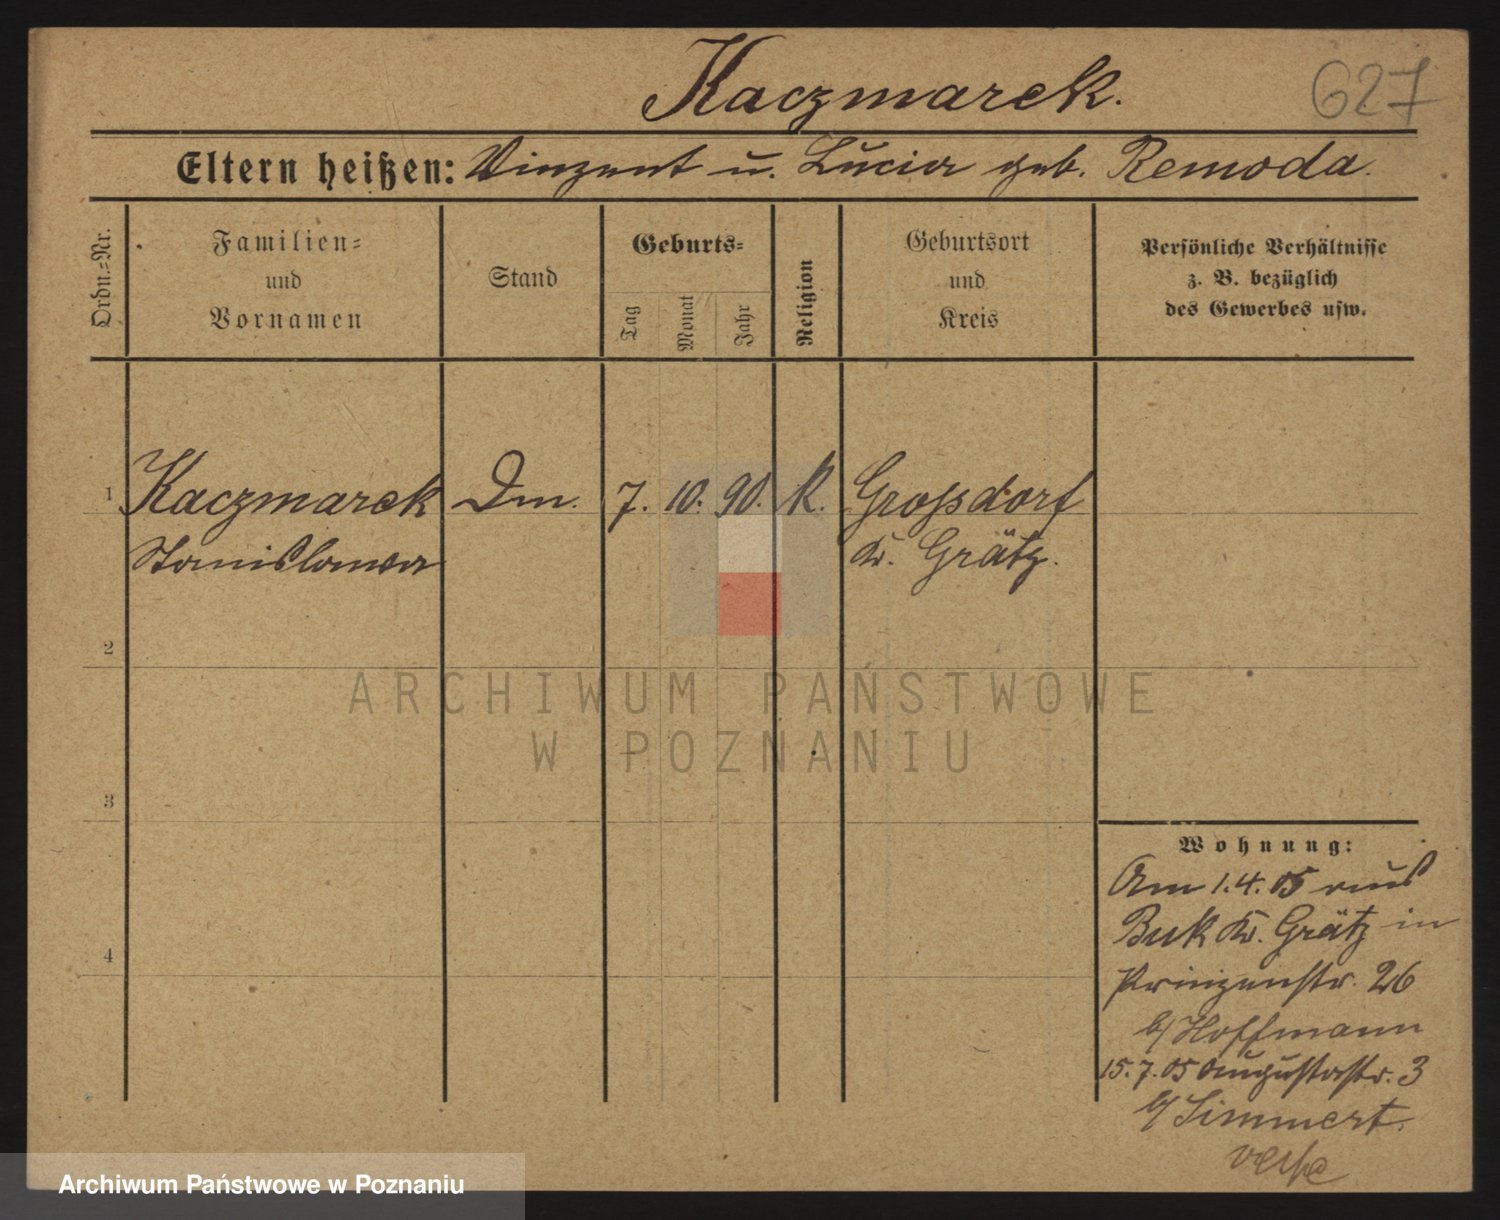 Kaczmarek.
627
Eltern heißen: Vinzent u. Lucia geb. Remoda.
Ordn.-Nr.
Familien-
und
Vornamen
Stand
Geburts-
Tag
Monat
Jahr
Religion
Geburtsort
und
Kreis
Persönliche Verhältnisse
z. B. bezüglich
des Gewerbes usw.
1 Kaczmarek Dm. 7. 10. 90. K. Grossdorf
Stanislawa Kr. Grätz.
2
ARCHIWUM PAŃSTWOWE
W POZNANIU
3
4
Wohnung:
Am 1.4.05 aus
Buk Kr. Grätz in
Prinzenstr. 26
b/ Hoffmann
15.7.05 Augustastr. 3
b/ Simmert.
Archiwum Państwowe w Poznaniu